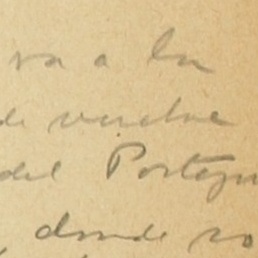 va a la
de vuelve
del Portugu
, donde so